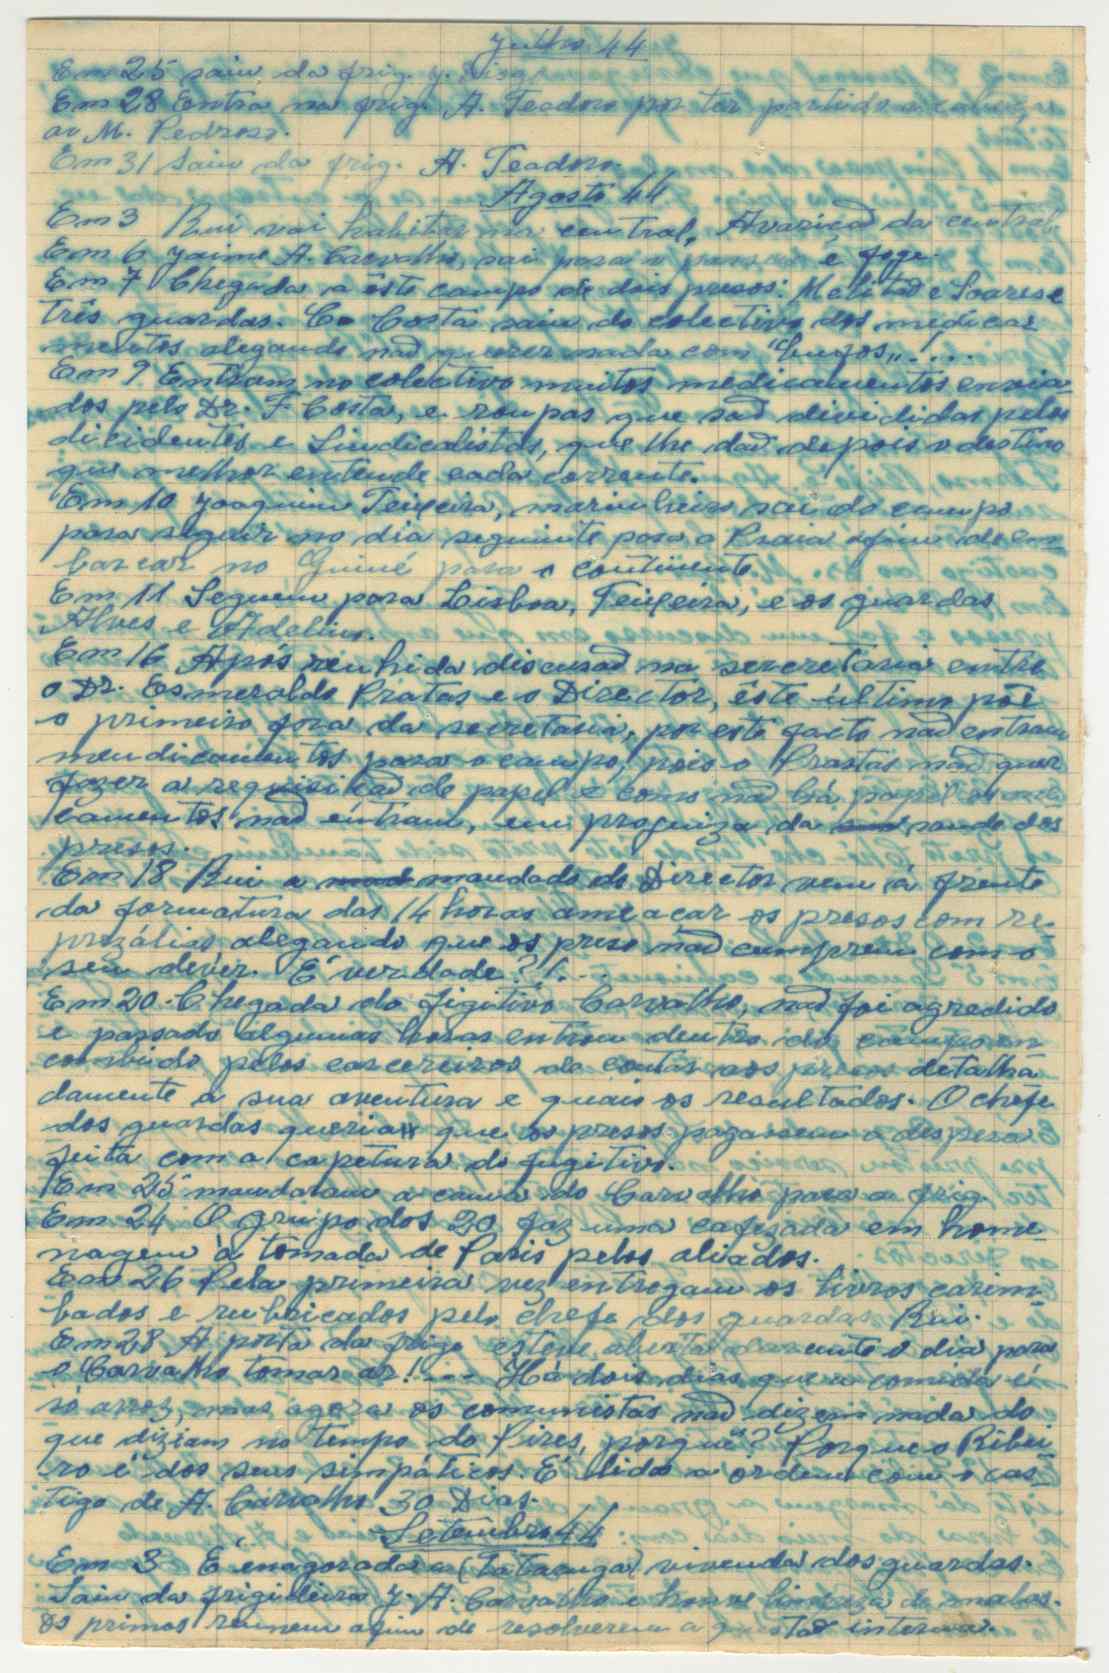 Julho 44
Em 25 saiu da frig. J.
Em 28 Entra na frig. A. Teodoro por ter partido a cabeça
ao M. Pedroso.
Em 31 Saiu da frig. A. Teodoro.
Agosto 44
Em 3 Rui vai habitar na central, Avaria da central
Em 6 Jaime A. Carvalho, sai para a e foge.
Em 7 Chegada a êste campo de dois presos: Melitão e Soares e
três guardas. C. Costa saiu do colectivo dos medica-
mentos alegando não querer nada com "bufos"....
Em 9 Entram no colectivo muitos medicamentos envia-
dos pelo Dr. F. Costa, e roupas que são divididas pelos
dicidentes e Sindicalistas, que lhe dão depois o destino
que melhor entende cada corrente.
Em 10 Joaquim Teixeira, marinheiro sai do campo
para seguir no dia seguinte para a Praia afim de em-
barcar no Guiné para o continente.
Em 11 Seguem para Lisboa, Teixeira, e os guardas
Alves e Adelino.
Em 16 Após renhida discusão na secretaria entre
o Dr. Esmeraldo Pratas e o Director, êste último põe
o primeiro fora da secretaria, por este facto não entram
mendicamentos para o campo, pois o Prastas não quer
fazer a requisicão de papel e como não há papel os medi-
camentos não entram, em proguiza da saude dos
presos.
Em 18 Rui a mandado do Director vem á frente
da formatura das 14 horas ameaçar os presos com re-
prezálias alegando que os preso não cumprem com o
seu dever. É verdade?!...
Em 20 - Chegada do figitivo Carvalho, não foi agredido
e passado algumas horas entrou dentro do campo on
convido pelos carcereiros a contar aos presos detalha-
damente a sua aventura e quais os resultados. O chefe
dos guardas queria que os presos pagassem a despesa
feita com a capetura do fugitivo.
Em 25 mandaram a cama do Carvalho para a frig.
Em 24 O grupo dos 20 faz uma cafezada em home-
nagem à tomada de Paris pelos aliados.
Em 26 Pela primeira vez entregam os livros carim-
bados e rubricados pelo chefe dos guardas Rui.
Em 28 A porta da frige esteve aberta durante o dia para
o Carvalho tomar ar!... Há dois dias que a comida é
só arroz, mas agora os comunistas não dizem nada do
que diziam no tempo do Pires, porquê? Porque o Ribei-
ro é dos seus simpáticos. É lida a ordem com o cas-
tigo de A. Carvalho 30 Dias.
Setembro 44
Em 3 É enagorada a (Tataruga) vivenda dos guardas.
Saiu da frigideira J. A. Carvalho e houve limpeza de malas.
Os primos reunem afim de resolverem a questão interna.